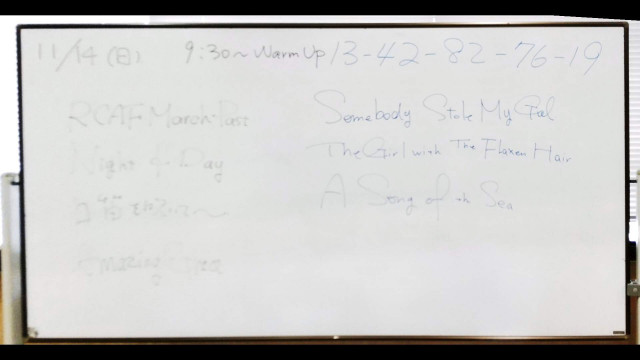 11/14(日) 9:30~ Warm Up 13-42-82-76-19
RCAF March Past
Night & Day
Amazing Grace
Somebody Stole My Gal
The Girl with The Flaxen Hair
A Song of th Sea